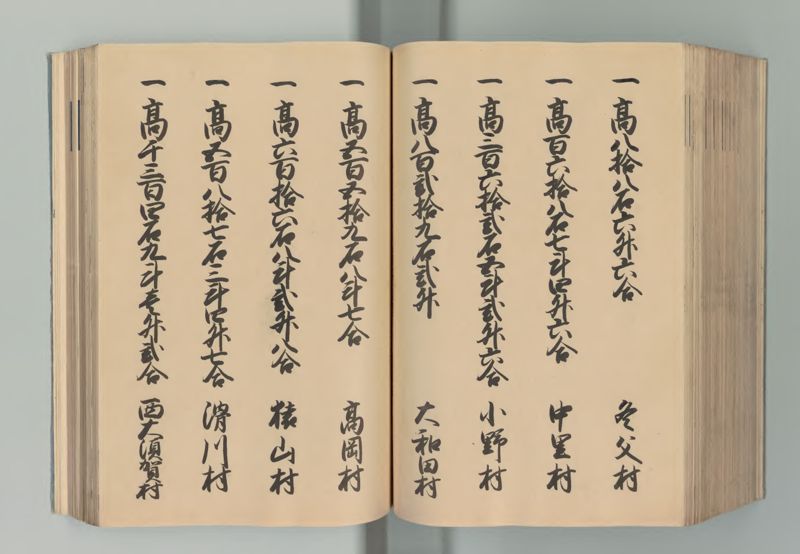 一高八拾八石六升六合 冬父村
一高百六拾八石七斗四升六合 中里村
一高三百六拾弐石五斗弐升六合 小野村
一高八百弐拾九石弐升 大和田村
一高五百五拾九石八斗七合 高岡村
一高六百拾六石八斗弐升八合 猿山村
一高五百八拾七石三斗四升七合 滑川村
一高千三百四石九斗壱升弐合 西大須賀村